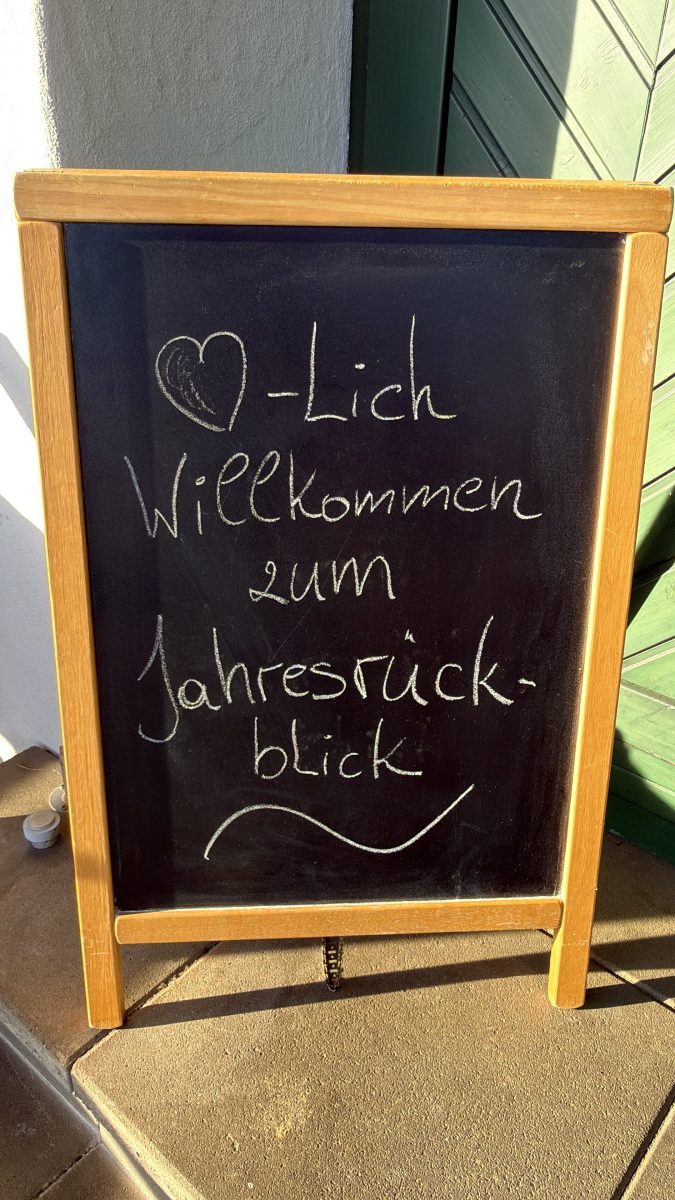 ♡-Lich
Willkommen
zum
Jahresrück-
blick